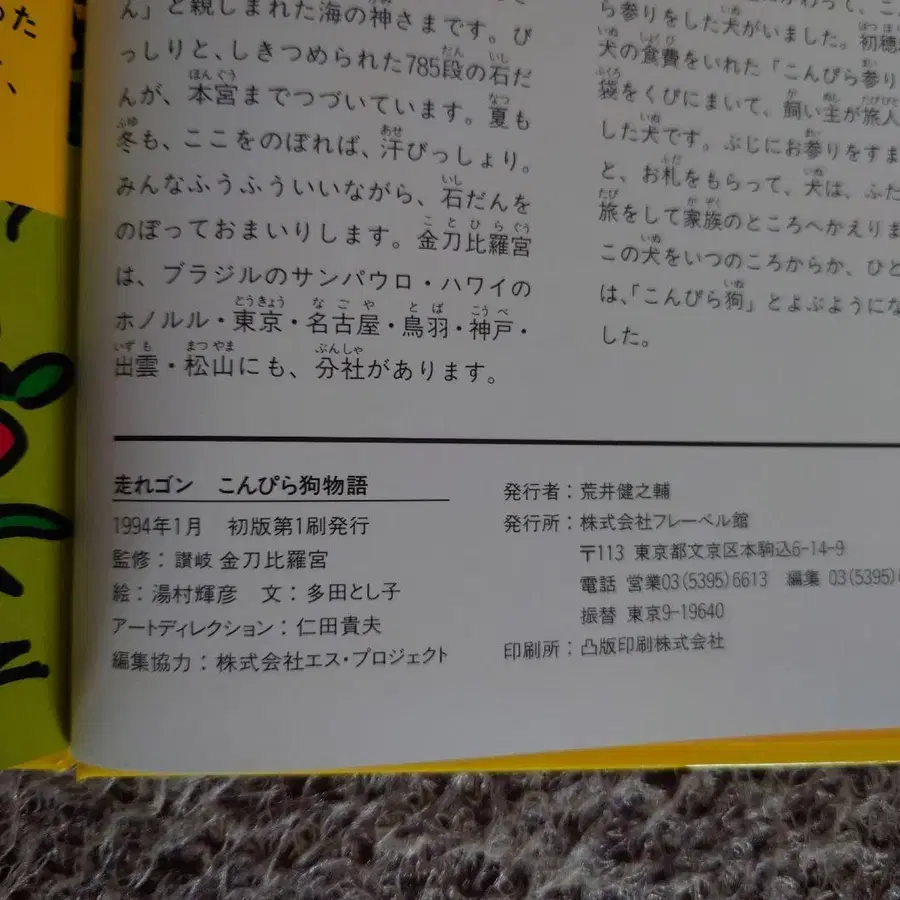 った
ん」と親しまれた海の神さまです。び
っしりと、しきつめられた785段の石だ
んが、本宮までつづいています。夏も
冬も、ここをのぼれば、汗びっしょり。
みんなふうふういいながら、石だんを
のぼっておまいりします。金刀比羅宮
は、ブラジルのサンパウロ・ハワイの
ホノルル・東京・名古屋・鳥羽・神戸・
出雲・松山にも、分社があります。
ら参りをした犬がいました。初穂
犬の食費をいれた「こんぴら参り
袋をくびにまいて、飼い主が旅人
した犬です。ぶじにお参りをすま
と、お札をもらって、犬は、ふた
旅をして家族のところへかえりま
この犬をいつのころからか、ひと
は、「こんぴら狗」とよぶようにな
した。
走れゴン こんぴら狗物語
1994年1月 初版第1刷発行
監修：讃岐 金刀比羅宮
絵：湯村輝彦 文：多田とし子
アートディレクション：仁田貴夫
編集協力：株式会社エス・プロジェクト
発行者：荒井健之輔
発行所：株式会社フレーベル館
〒113 東京都文京区本駒込6-14-9
電話 営業03(5395)6613 編集 03(5395)
振替 東京9-19640
印刷所：凸版印刷株式会社